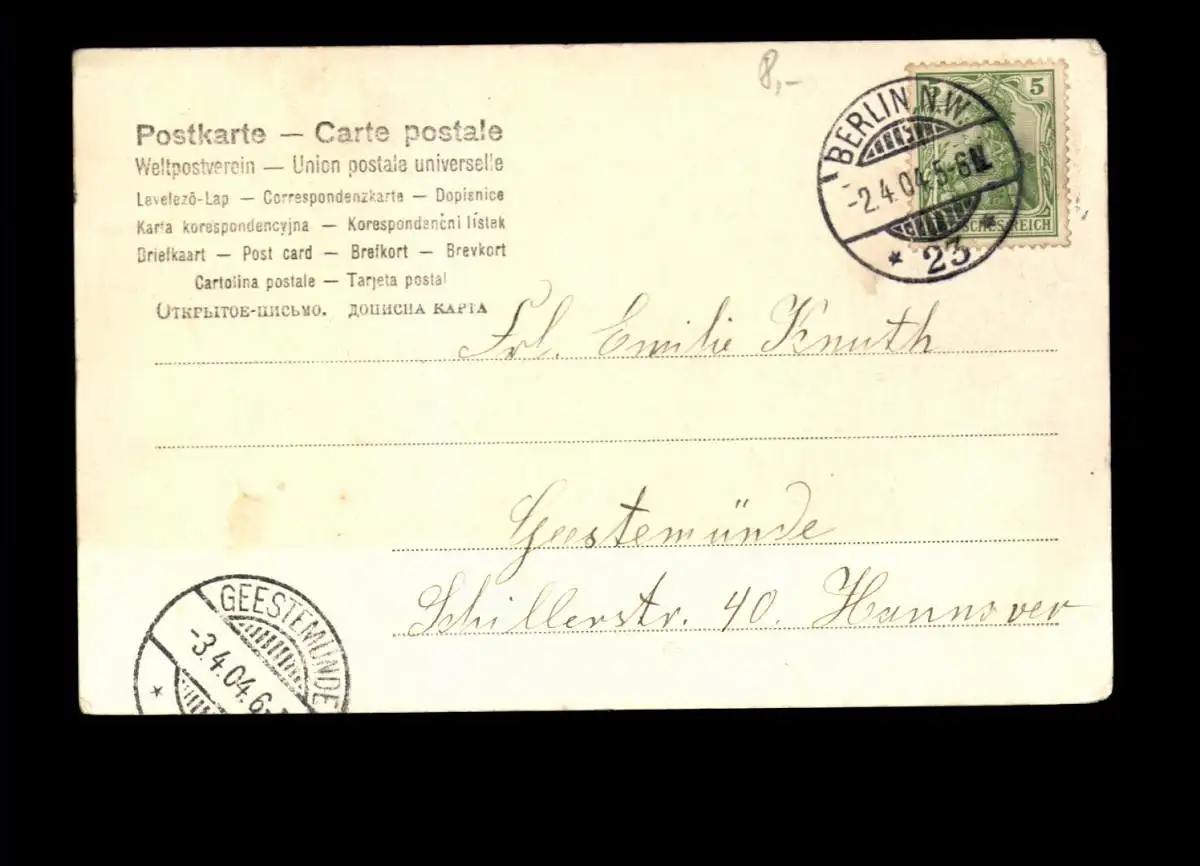 8,-
5
BERLIN N.W.
-2.4.04. 5-6N.
* 23 *
SCHES REICH
Postkarte — Carte postale
Weltpostverein — Union postale universelle
Levelező-Lap — Correspondenzkarte — Dopisnice
Karta korespondencyjna — Korespondenčni lístek
Briefkaart — Post card — Brefkort — Brevkort
Cartolina postale — Tarjeta postal
Открытое-письмо. дописна карта
Frl. Emilie Knuth
Geestemünde
Schillerstr. 40. Hannover
GEESTEMÜNDE
-3.4.04. 6-
*